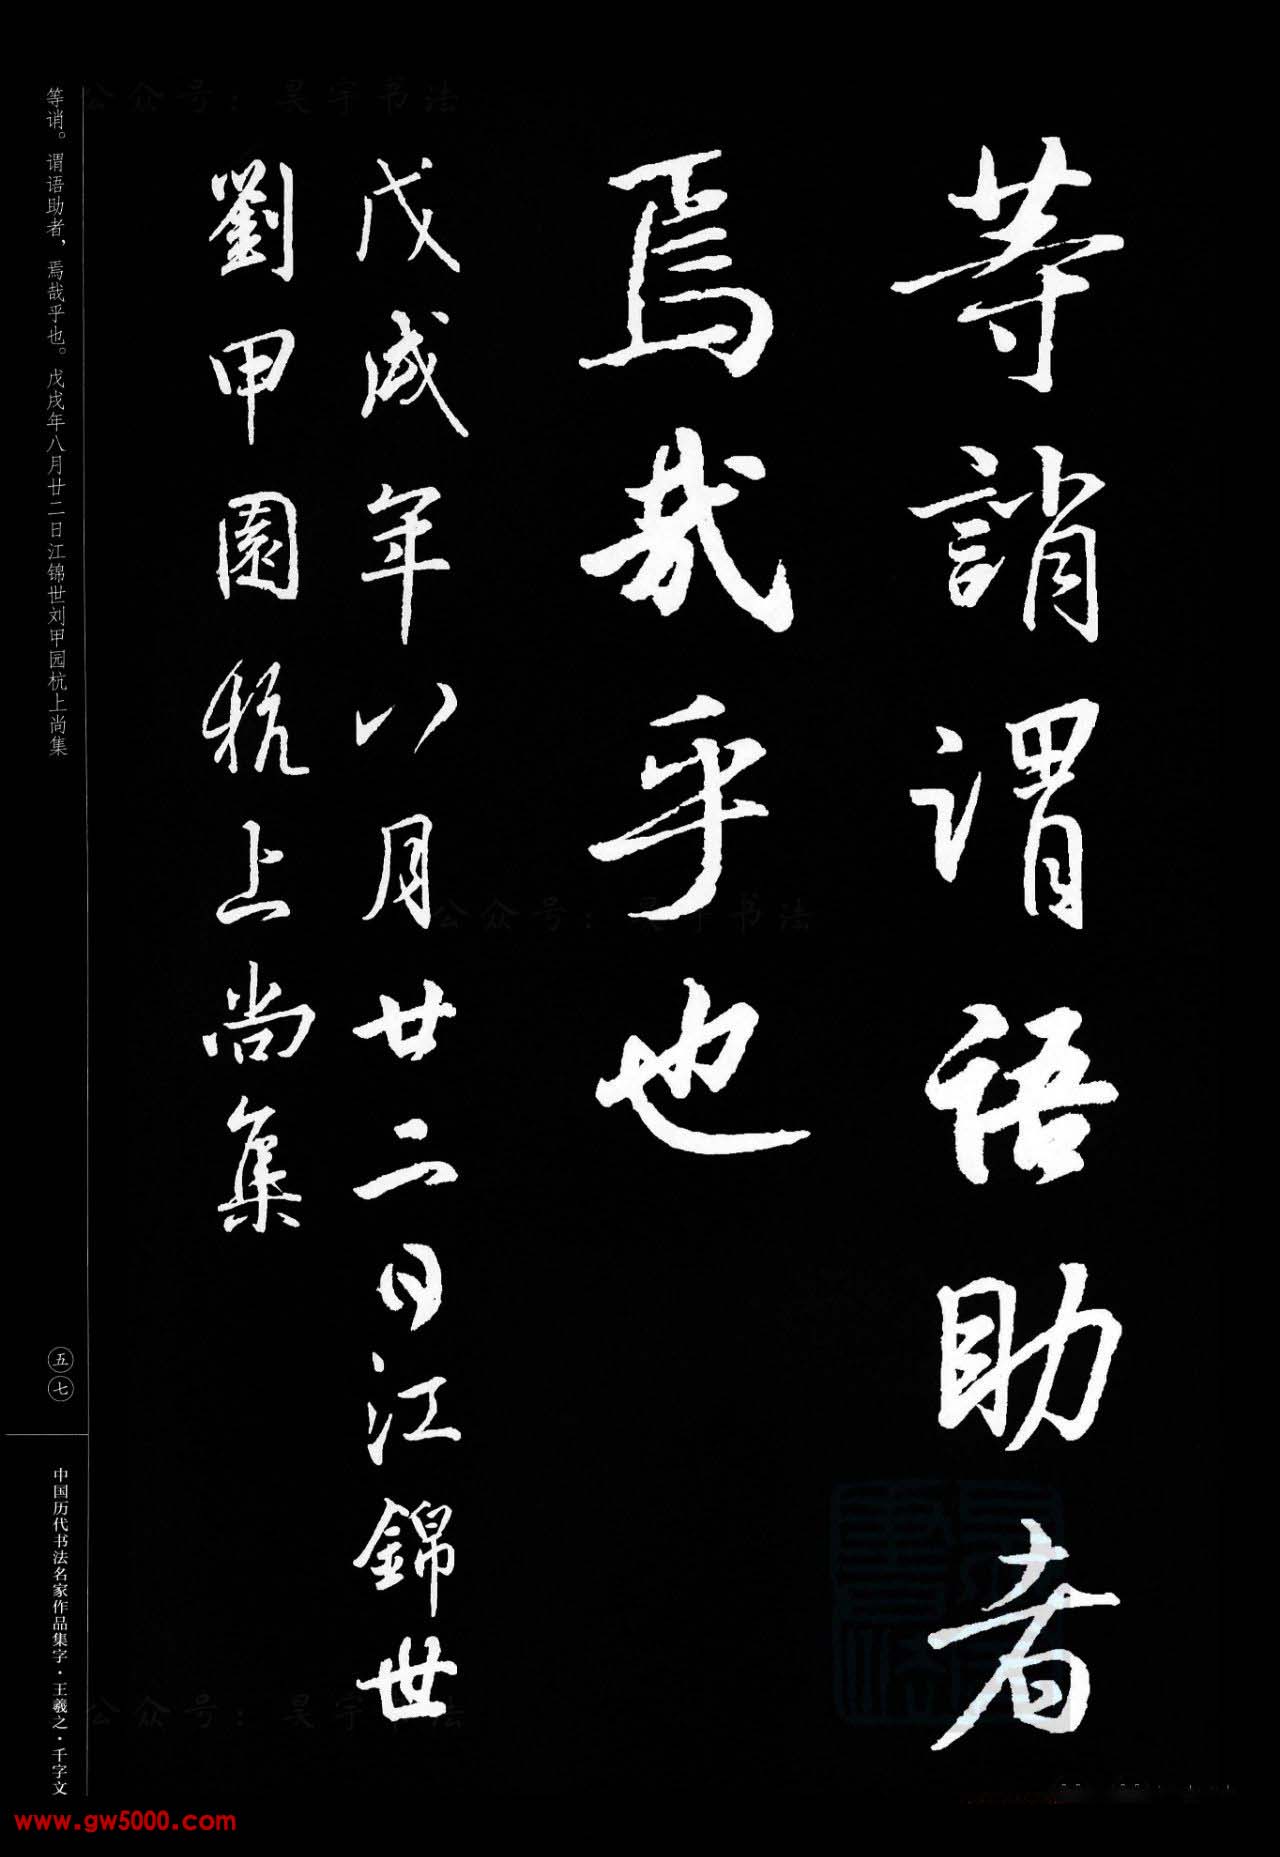 等誚謂語助者
焉哉乎也
戊戌年八月廿二日江錦世
劉甲園杭上尚集
等诮。谓语助者，焉哉乎也。戊戌年八月廿二日江锦世刘甲园杭上尚集
五七
中国历代书法名家作品集字·王羲之·千字文
公众号：昊宇书法
公众号：昊宇书法
公众号：昊宇书法
www.gw5000.com